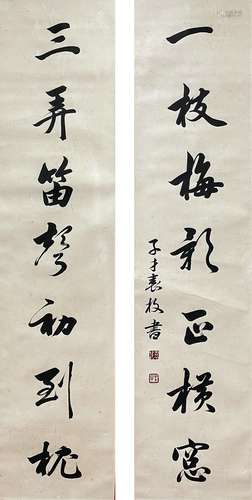 一枝梅影正横窓
子才袁枚書
三弄笛聲初到枕